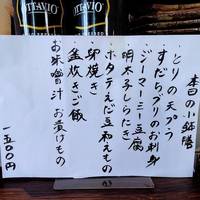 OTTAVIO
OTTAVIO
本日の小鉢膳
・とりの天プラ
・すだちブリのお刺身
・ジーマーミー豆腐
・明太子しらたき
・ホタテえだ豆和えもの
・卵焼き
・釜炊きご飯
・お味噌汁 お漬けもの
一五〇〇円